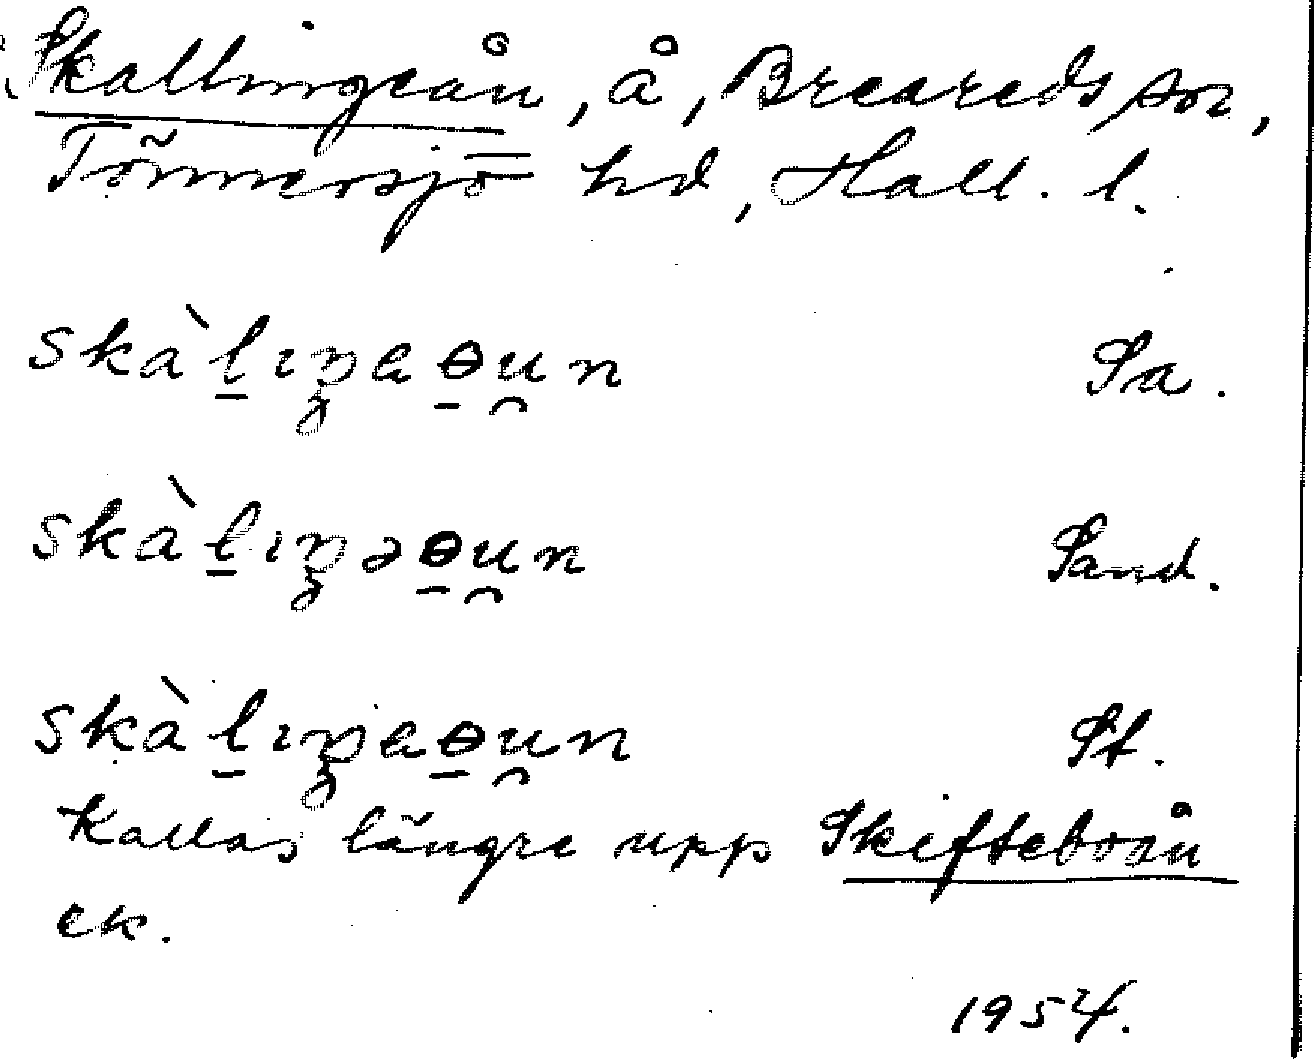 Skallingeån, å, Breareds sn,
Tönnersjö hd, Hall. l.
skàl̠ıŋaɵ̠u̯n Sa.
skàl̠ıŋəɵ̠u̯n Sand.
skàl̠ıŋaɵ̠u̯n St.
Kallas längre upp Skifteboån
ek.
1954.